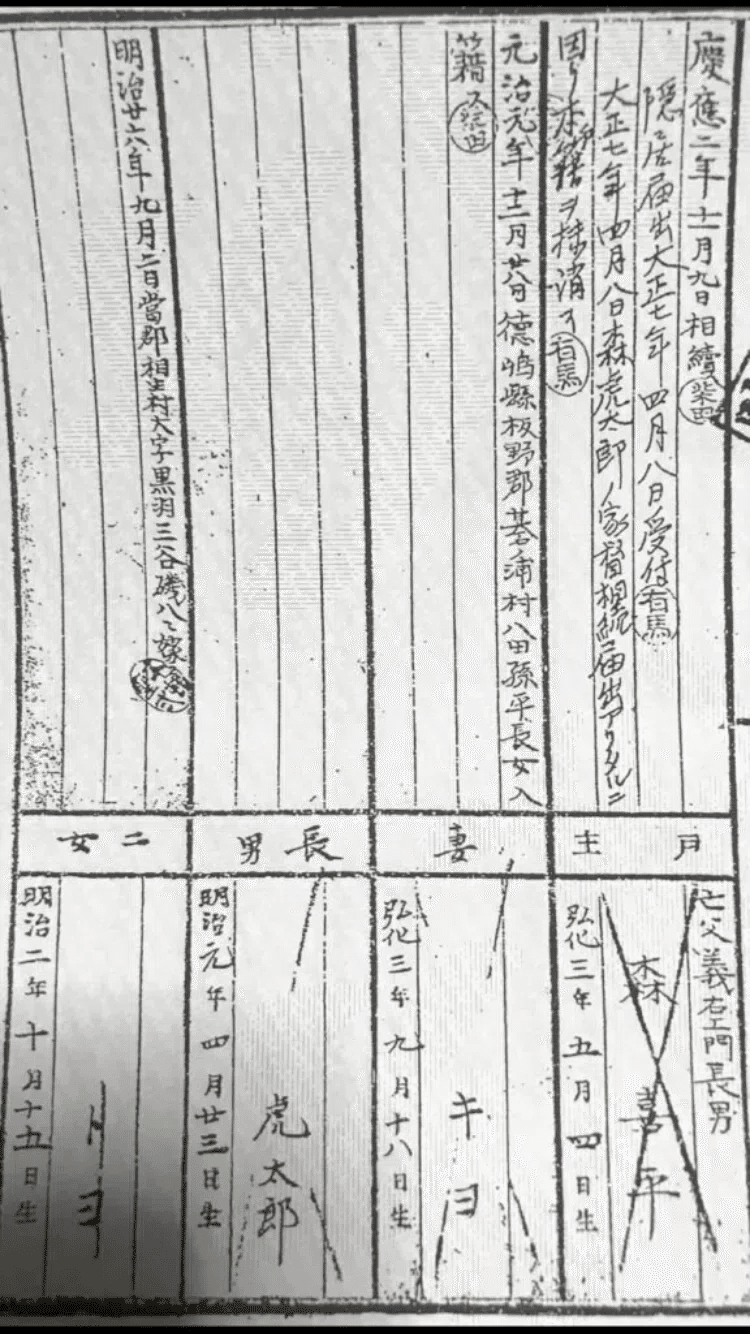 慶應二年十一月九日相續
隠居届出大正七年四月八日受付有馬
大正七年四月八日森虎太郎ノ家督相続届出アリタルニ
因リ本籍ヲ抹消ス有馬
戸主
亡父義右エ門長男
森喜平
弘化三年五月四日生
元治元年十二月廿八日徳嶋縣板野郡 村八田孫平長女入
籍ス
妻
キヨ
弘化三年九月十八日生
長男
虎太郎
明治元年四月廿三日生
明治廿六年九月二日當郡相生村大字黒羽三谷磯八ヘ嫁
二女
トヨ
明治二年十月十五日生